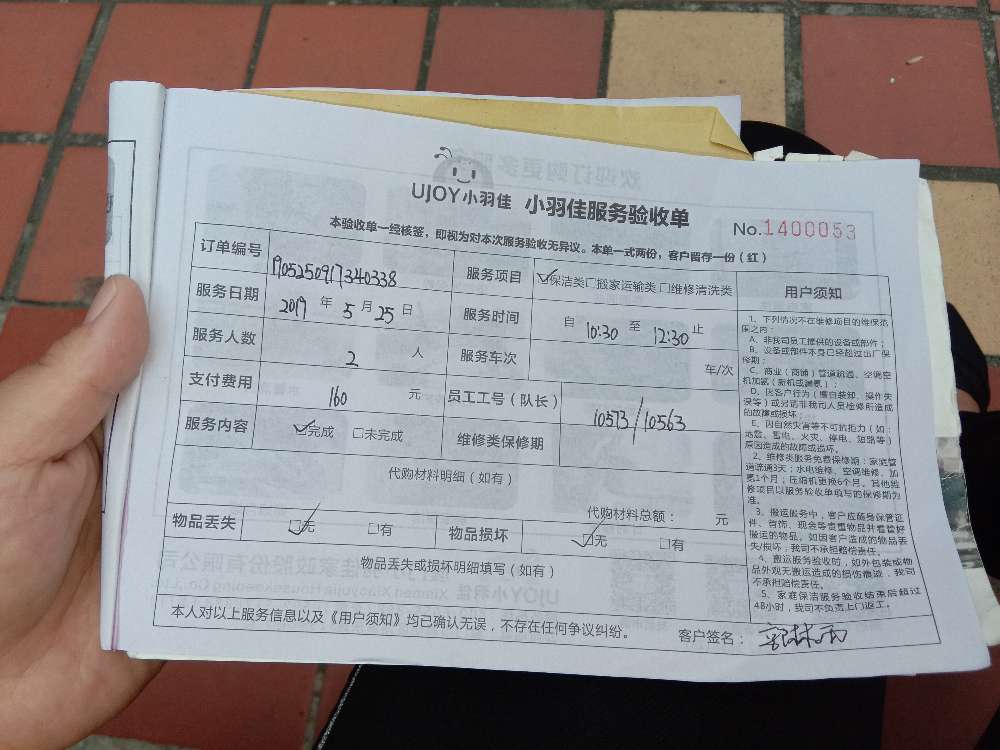 UJOY小羽佳 小羽佳服务验收单
No.1400053
本验收单一经核签，即视为对本次服务验收无异议。本单一式两份，客户留存一份（红）
订单编号 1905250917340338 服务项目 ☑保洁类□搬家运输类□维修清洗类
服务日期 2019 年 5 月 25 日 服务时间 自 10:30 至 12:30 止
服务人数 2 人 服务车次 车/次
支付费用 160 元 员工工号（队长） 10573/10563
服务内容 ☑完成 □未完成 维修类保修期
代购材料明细（如有）
代购材料总额： 元
物品丢失 ☑无 □有 物品损坏 ☑无 □有
物品丢失或损坏明细填写（如有）
本人对以上服务信息以及《用户须知》均已确认无误，不存在任何争议纠纷。 客户签名：
用户须知
1、下列情况不在维修项目的维保范
围之内：
A、非我司员工提供的设备或部件；
B、设备或部件本身已经超过出厂保
修期；
C、商业（商铺）管道疏通、空调空
机加氟（新机或漏氟）；
D、因客户行为（擅自装卸、操作失
误等）或另请非我司人员检修所造成
的故障或损坏
E、因自然灾害等不可抗拒力（如：
地震、雷电、火灾、停电、短路等）
原因造成的故障或损坏。
2、维修类服务免费保修期：家庭管
道疏通3天；水电维修、空调维修、加
氟1个月；压缩机更换6个月。其他维
修项目以服务验收单填写的保修期为
准。
3、搬运服务中，客户应随身保管证
件、首饰、现金等贵重物品并看管好
搬运的物品。如因客户造成的物品丢
失/损坏，我司不承担赔偿责任。
4、搬运服务验收时，如外包装或物
品外观无搬运造成的损伤痕迹，我司
不承担赔偿责任。
5、家庭保洁服务验收结束后超过
48小时，我司不负责上门返工。